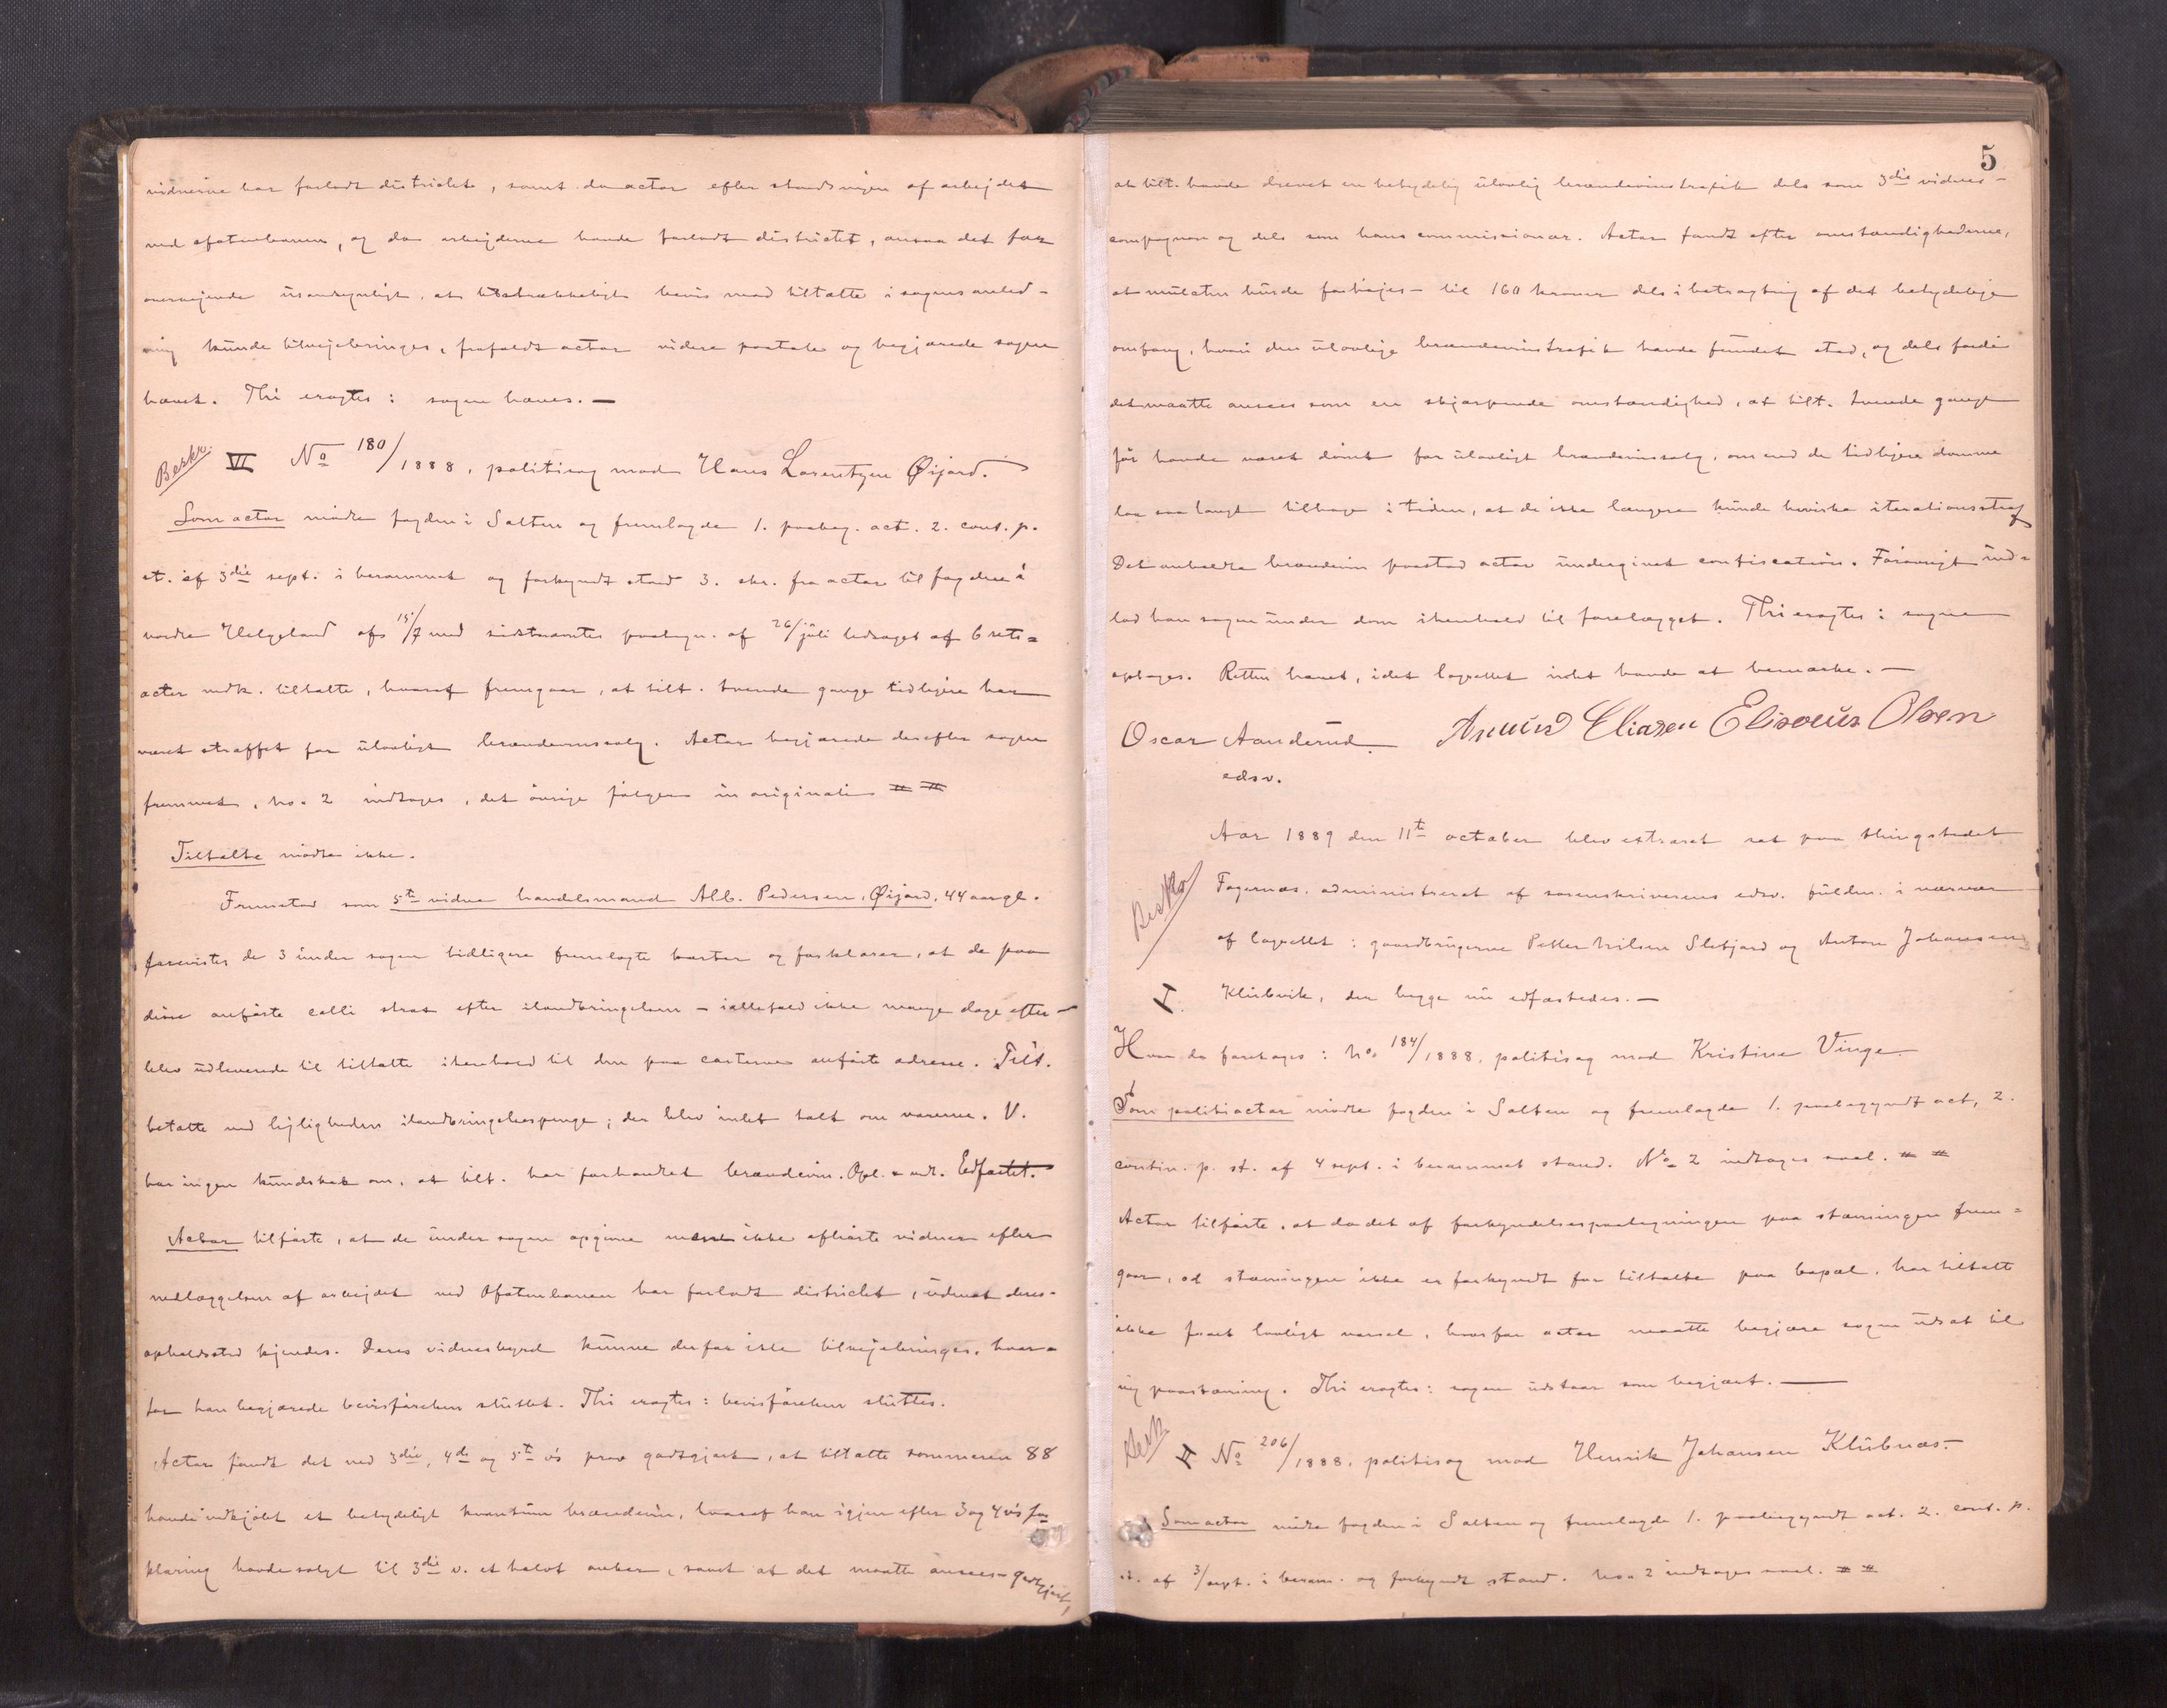 vidnerne har forladt districtet, samt da actor efter standsningen af arbejdet
ved ofotenbanen, og da arbejderne havde forladt districtet, ansaa det for
overvejende usandsynligt, at tilstrækkeligt bevis mod tiltalte i sagens anled-
ning kunde tilvejebringes, frafaldt actor videre paatale og begjærede sagen
hævet. Thi eragtes: sagen hæves. —
Beskr. VI No 180/1888, politisag mod Hans Lorentzen Øijord.
Som actor mødte fogden i Salten og fremlagde 1. paabeg. act. 2. cont. p.
st. af 3die sept. i berammet og forkyndt stand 3. skr. fra actor til fogden i
nordre Helgeland af 15/7 med sidstnævntes paategn. af 26/juli ledsaget af 6 rets=
acter vedk. tiltalte, hvoraf fremgaar, at tilt. tvende gange tidligere har
været straffet for ulovligt brændevinssalg. Actor begjærede derefter sagen
fremmet, no. 2 indtages, det øvrige følger in originali
Tiltalte mødte ikke.
Fremstod som 5te vidne handelsmand Alb. Pedersen, Øijord, 44 aar gl.
forevistes de 3 under sagen tidligere fremlagte karter og forklarer, at de paa
disse anførte colli strax efter ilandbringelsen – iallefald ikke mange dage efter –
blev udleverede til tiltalte i henhold til den paa carterne anførte adresse. Tilt.
betalte ved lejligheden ilandbringelsespenge; der blev intet talt om varerne. V.
har ingen kundskab om, at tilt. har forhandlet brændevin. Opl. vedt. Edfæstet.
Actor tilførte, at de under sagen opgivne men ikke afhørte vidner efter
nedlæggelsen af arbejdet ved Ofotenbanen har forladt districtet, uden at deres
opholdssted kjendes. Deres vidnesbyrd kunne derfor ikke tilvejebringes, hvor-
for han begjærede bevisførelsen sluttet. Thi eragtes: bevisførelsen sluttes.
Actor fandt det ved 3die, 4de og 5te v's prov godtgjort, at tiltalte sommeren 88
havde indkjøbt et betydeligt kvantum brændevin, hvoraf han igjen efter 3 og 4 v's for
klaring havde solgt til 3die v. et halvt anker, samt at det maatte ansees godtgjort,
5
at tilt. havde drevet en betydelig ulovlig brændevinstrafik dels som 3die vidnes -
compagnon og dels som hans commissionær. Actor fandt efter omstændighederne,
at mulcten burde forhøjes – til 160 kroner dels i betragtning af det betydelige
omfang, hvori den ulovlige brændevinstrafik havde fundet sted, og dels fordi
det maatte ansees som en skjærpende omstændighed, at tilt. tvende gange
før havde været dømt for ulovligt brændevinssalg, om end de tidligere domme
laa saa langt tilbage i tiden, at de ikke længere kunde bevirke iterationsstraf
Det anholdte brændevin paastod actor undergivet confiscation. Forøvrigt ind=
lod han sagen under dom i henhold til forelægget. Thi eragtes: sagen
optages. Retten hævet, idet lagrettet intet havde at bemærke. —
Oscar Aanderud Amund Eliasen Elisæus Olsen
edsv.
Aar 1889 den 11te october blev extraret sat paa thingstedet
Beskr. Fagernæs, administreret af sorenskriverens edsv. fuldm. i nærvær
af lagrettet: gaardbrugerne Petter Nilsen Sletjord og Anton Johansen
I. Klubvik, der begge nu edfæstedes. —
Hvor da foretoges: No. 184/1888, politisag mod Kristine Vinge.
Som politiactor mødte fogden i Salten og fremlagde 1. paabegyndt act, 2.
contin. p. st. af 4 sept. i berammet stand. No 2 indtages saal.
Actor tilførte, at da det af forkyndelsespaategningen paa stævningen frem=
gaar, at stævningen ikke er forkyndt for tiltalte paa bopæl, har tiltalte
ikke faaet lovligt varsel, hvorfor actor maatte begjære sagen udsat til
ny paastævning. Thi eragtes: sagen udstaar som begjært. —
Beskr. II No 206/1888, politisag mod Henrik Johansen Klubnæs.
Som actor mødte fogden i Salten og fremlagde 1. paabegyndt act. 2. cont. p.
st. af 3/sept. i beram. og forkyndt stand. No. 2 indtages saal.